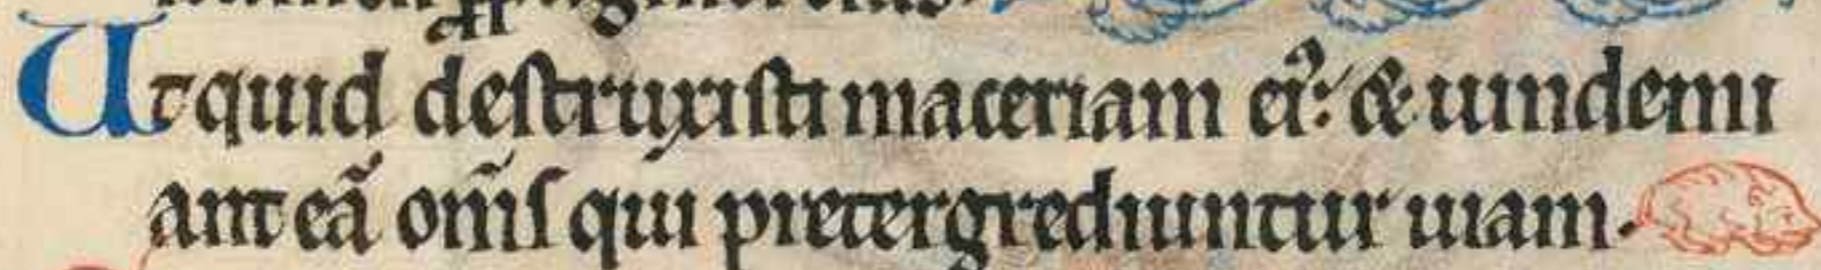 Utquid destruxisti maceriam ei᷒: & uindemi
ant eā om̄s qui pretergrediuntur uiam.